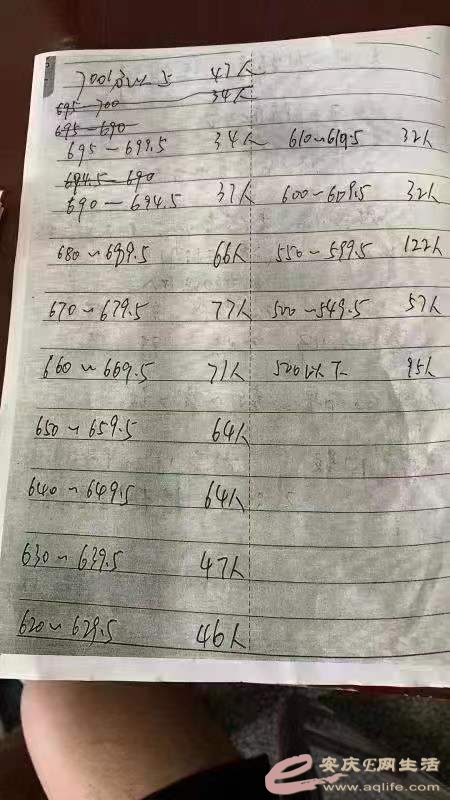 700分以上 47人
695-700 34人
695-690
695-699.5 34人 610~619.5 32人
694.5-690
690-694.5 37人 600~609.5 32人
680~689.5 66人 550~599.5 122人
670~679.5 77人 500~549.5 57人
660~669.5 71人 500以下 95人
650-659.5 64人
640~649.5 64人
630~639.5 47人
620~629.5 46人
安庆E网生活
www.aqlife.com